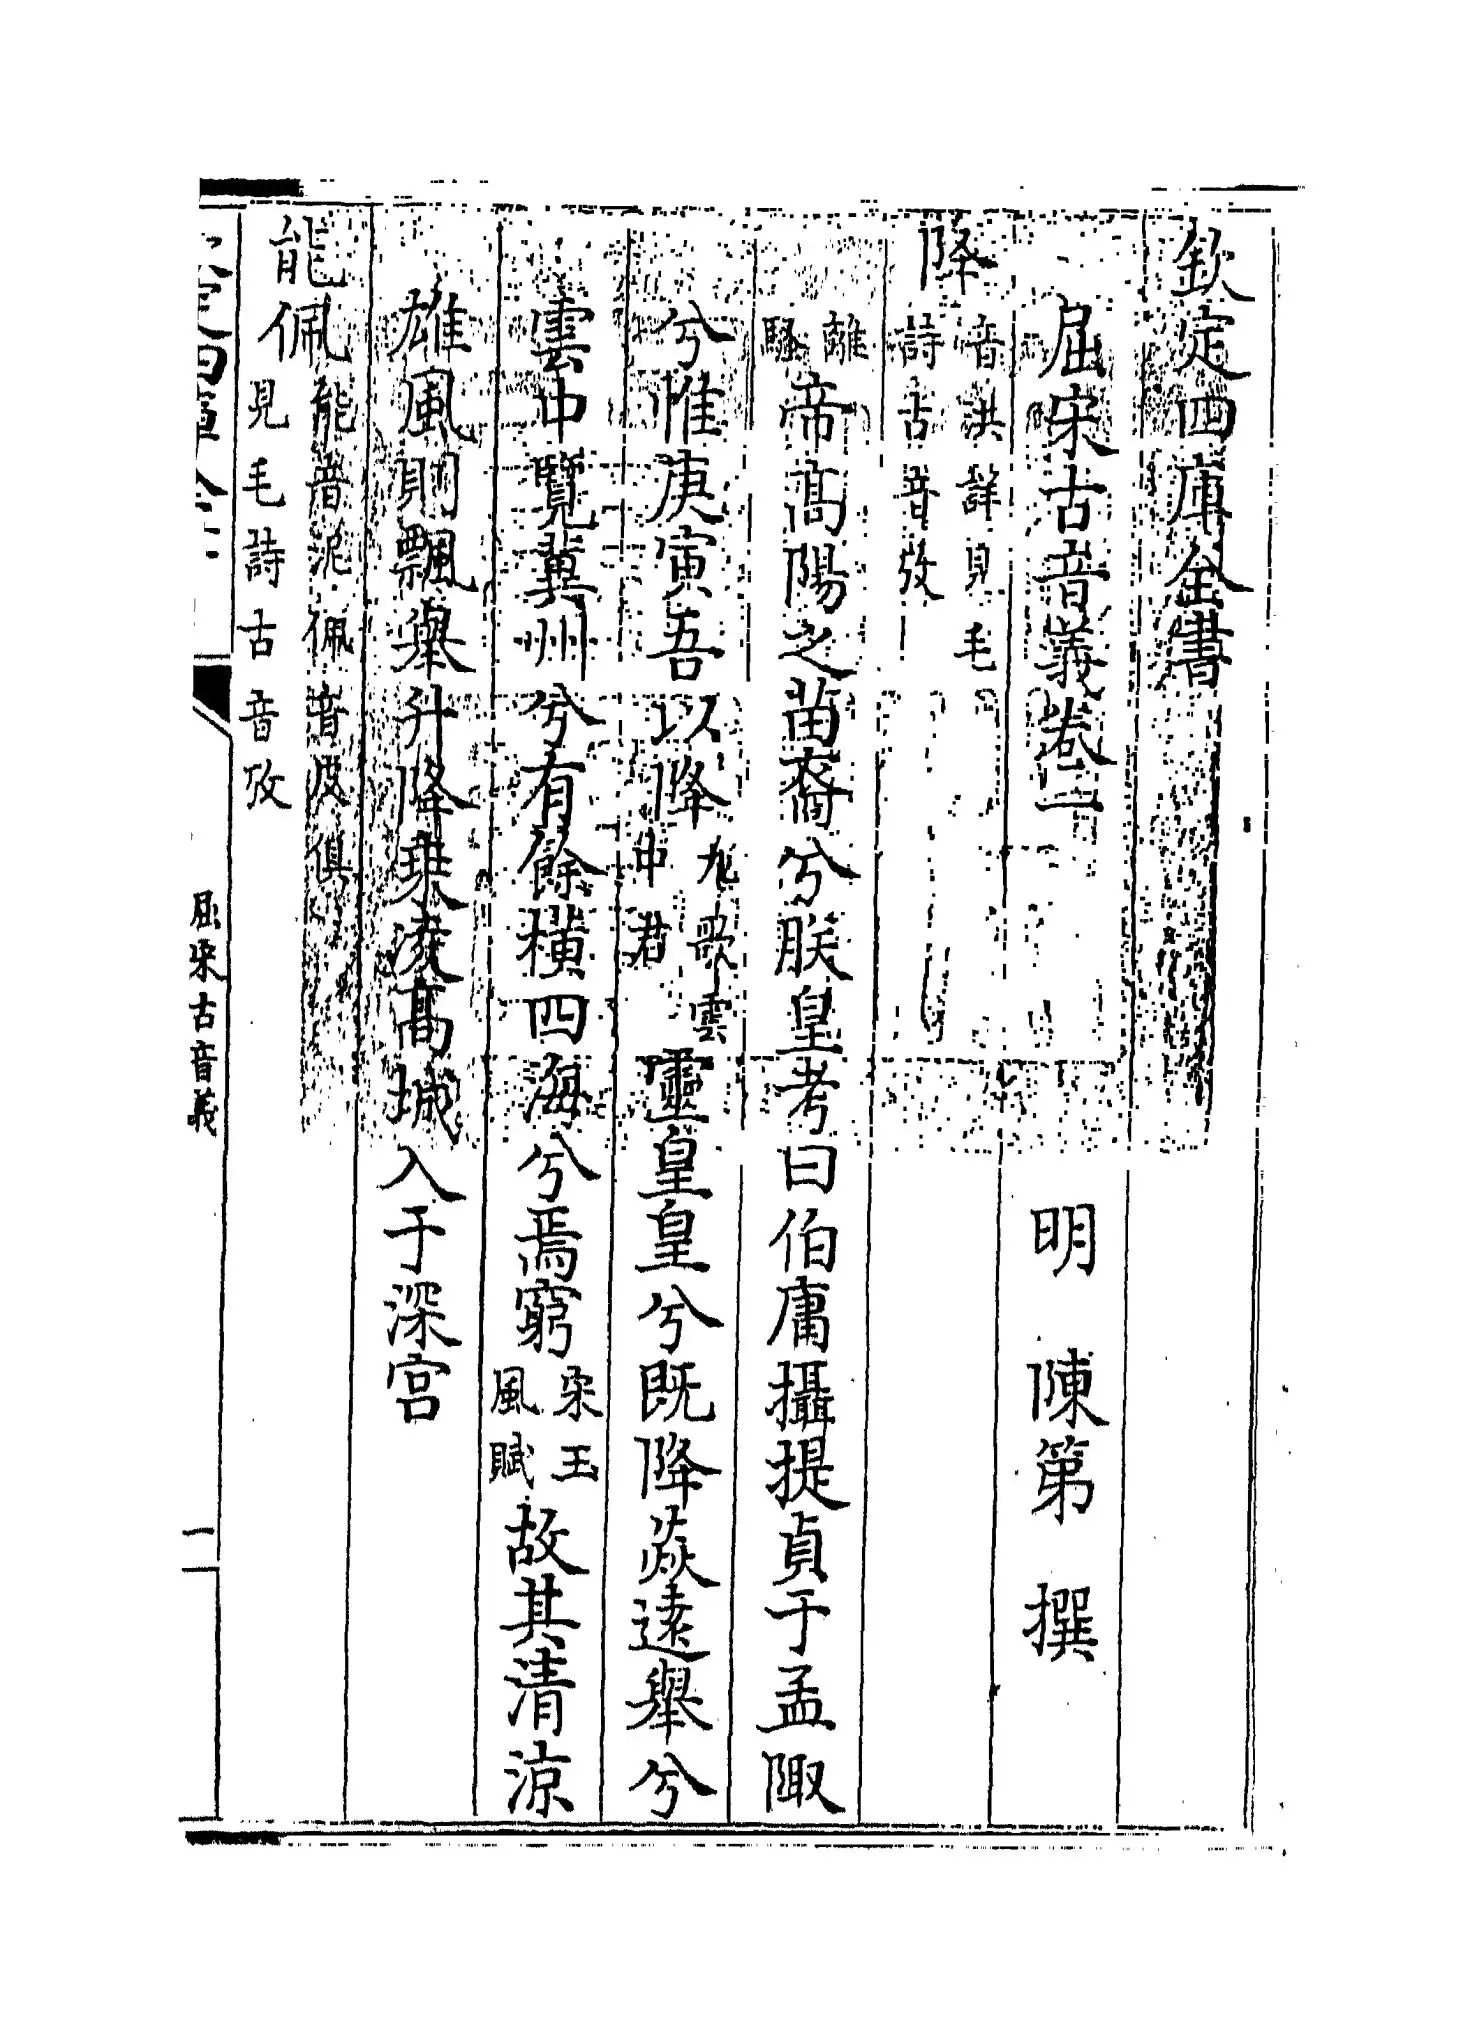 欽定四庫全書
屈宋古音義卷一
明 陳第 撰
降
音洪詳見毛
詩古音攷
離
騷
帝髙陽之苗裔兮朕皇考曰伯庸攝提貞于孟陬
兮惟庚寅吾以降
九歌雲
中君
靈皇皇兮既降焱逺舉兮
雲中覽冀州兮有餘橫四海兮焉窮
宋玉
風賦
故其清涼
雄風則飄舉升降乗淩髙城入于深宫
能佩
能音泥佩音皮俱
見毛詩古音攷
屈宋古音義
一